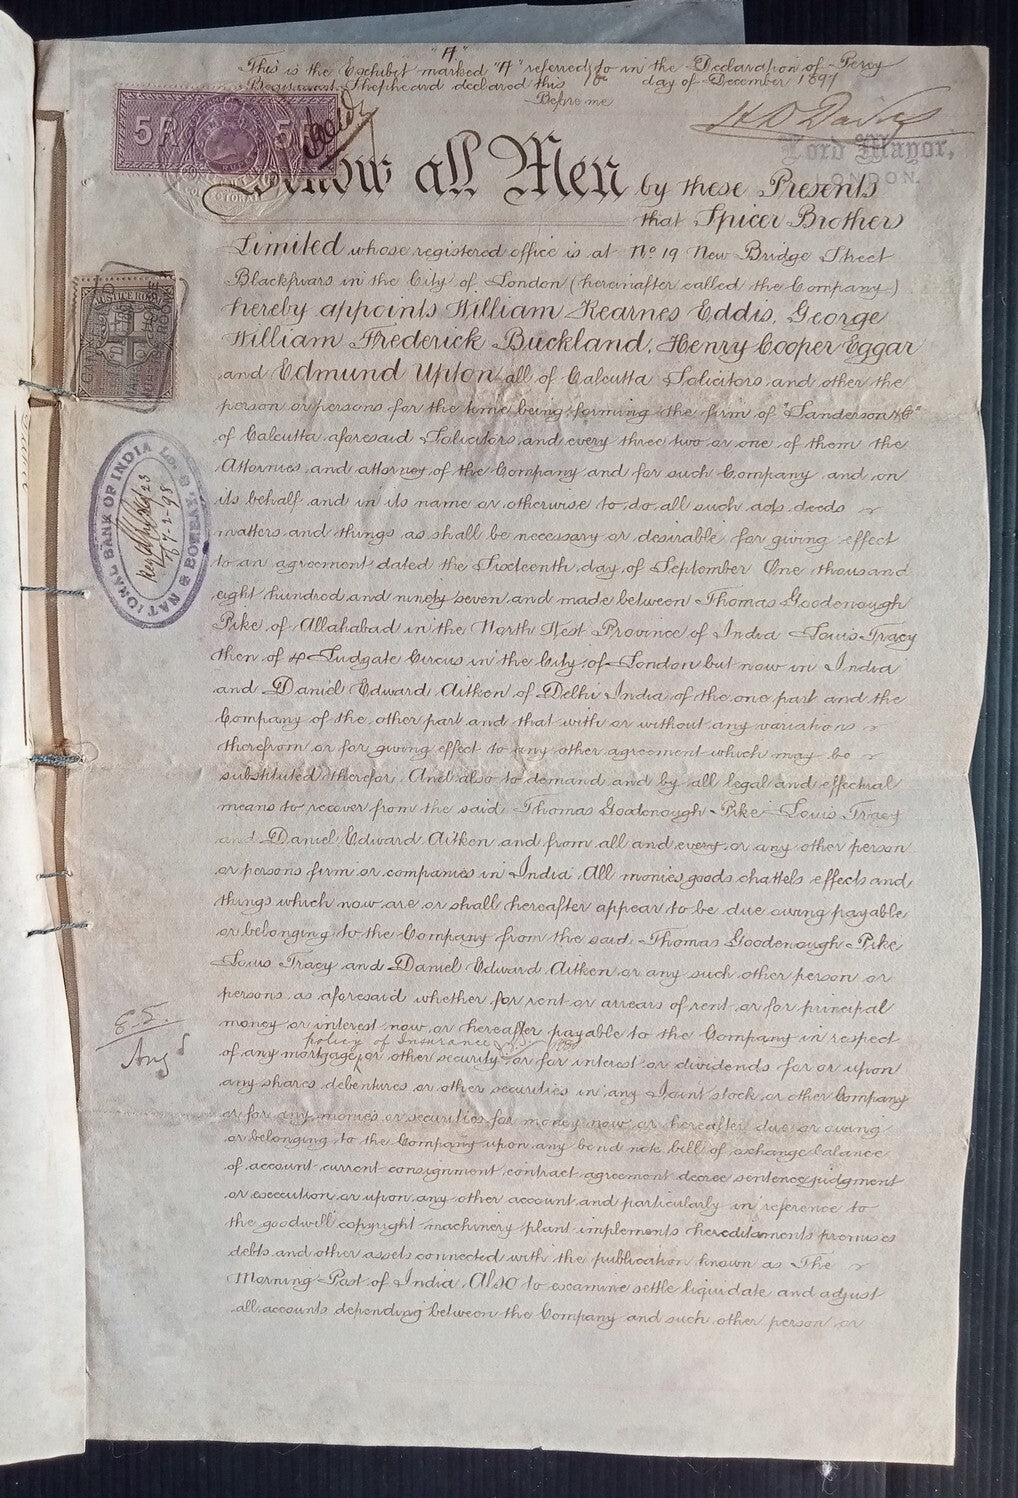 "A"
This is the Exhibit marked "A" referred to in the Declaration of Percy
Shepheard declared this 16th day of December 1897
Before me
Lord Mayor,
LONDON.
5 R 5
Know all Men by these Presents
that Spicer Brothers
Limited whose registered office is at No 19 New Bridge Street
Blackfriars in the City of London (hereinafter called the Company)
hereby appoints William Kearnes Eddis, George
William Frederick Buckland, Henry Cooper Eggar
and Edmund Upton all of Calcutta Solicitors and other the
person or persons for the time being forming the firm of "Sanderson & Co"
of Calcutta aforesaid Solicitors and every three two or one of them the
Attornies and attorney of the Company and for such Company and on
its behalf and in its name or otherwise to do all such acts deeds
matters and things as shall be necessary or desirable for giving effect
to an agreement dated the Sixteenth day of September One thousand
eight hundred and ninety seven and made between Thomas Goodenough
Pike of Allahabad in the North West Province of India Louis Tracy
then of 4 Ludgate Circus in the City of London but now in India
and Daniel Edward Aitken of Delhi India of the one part and the
Company of the other part and that with or without any variations
therefrom or for giving effect to any other agreement which may be
substituted therefor And also to demand and by all legal and effectual
means to recover from the said Thomas Goodenough Pike Louis Tracy
and Daniel Edward Aitken and from all and every or any other person
or persons firm or companies in India All monies goods chattels effects and
things which now are or shall hereafter appear to be due owing payable
or belonging to the Company from the said Thomas Goodenough Pike
Louis Tracy and Daniel Edward Aitken or any such other person or
persons as aforesaid whether for rent or arrears of rent or for principal
money or interest now or hereafter payable to the Company in respect
policy of Insurance
of any mortgage or other security or for interest or dividends for or upon
any shares debentures or other securities in any Joint stock or other Company
or for any monies or securities for money now or hereafter due or owing
or belonging to the Company upon any bond note bill of exchange balance
of account current consignment contract agreement decree sentence judgment
or execution or upon any other account and particularly in reference to
the goodwill copyright machinery plant implements hereditaments premises
debts and other assets connected with the publication known as The
Morning Post of India Also to examine settle liquidate and adjust
all accounts depending between the Company and such other person or
JUSTICE ROOM
NATIONAL BANK OF INDIA LD.
BOMBAY
7-2-98